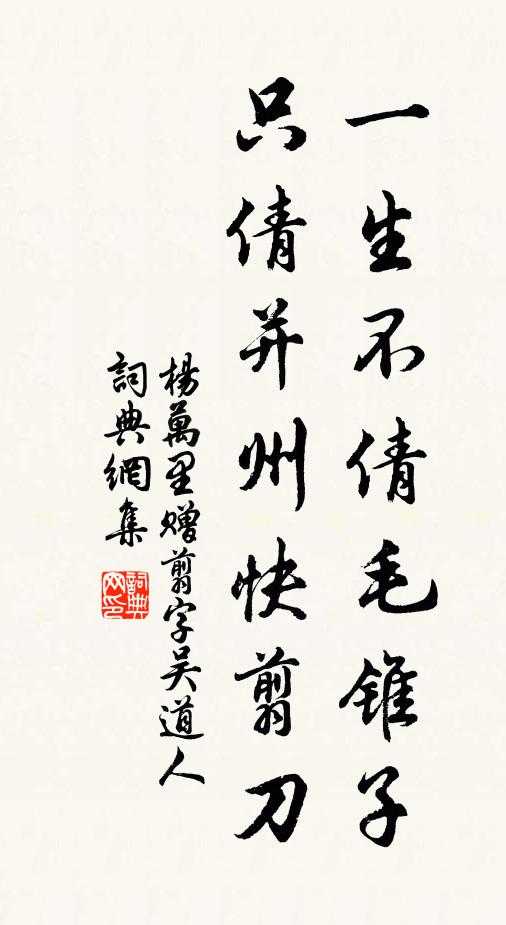 一生不倩毛錐子
只倩并州快翦刀
楊萬里贈翦字吴道人
詞典網集
詞典网印